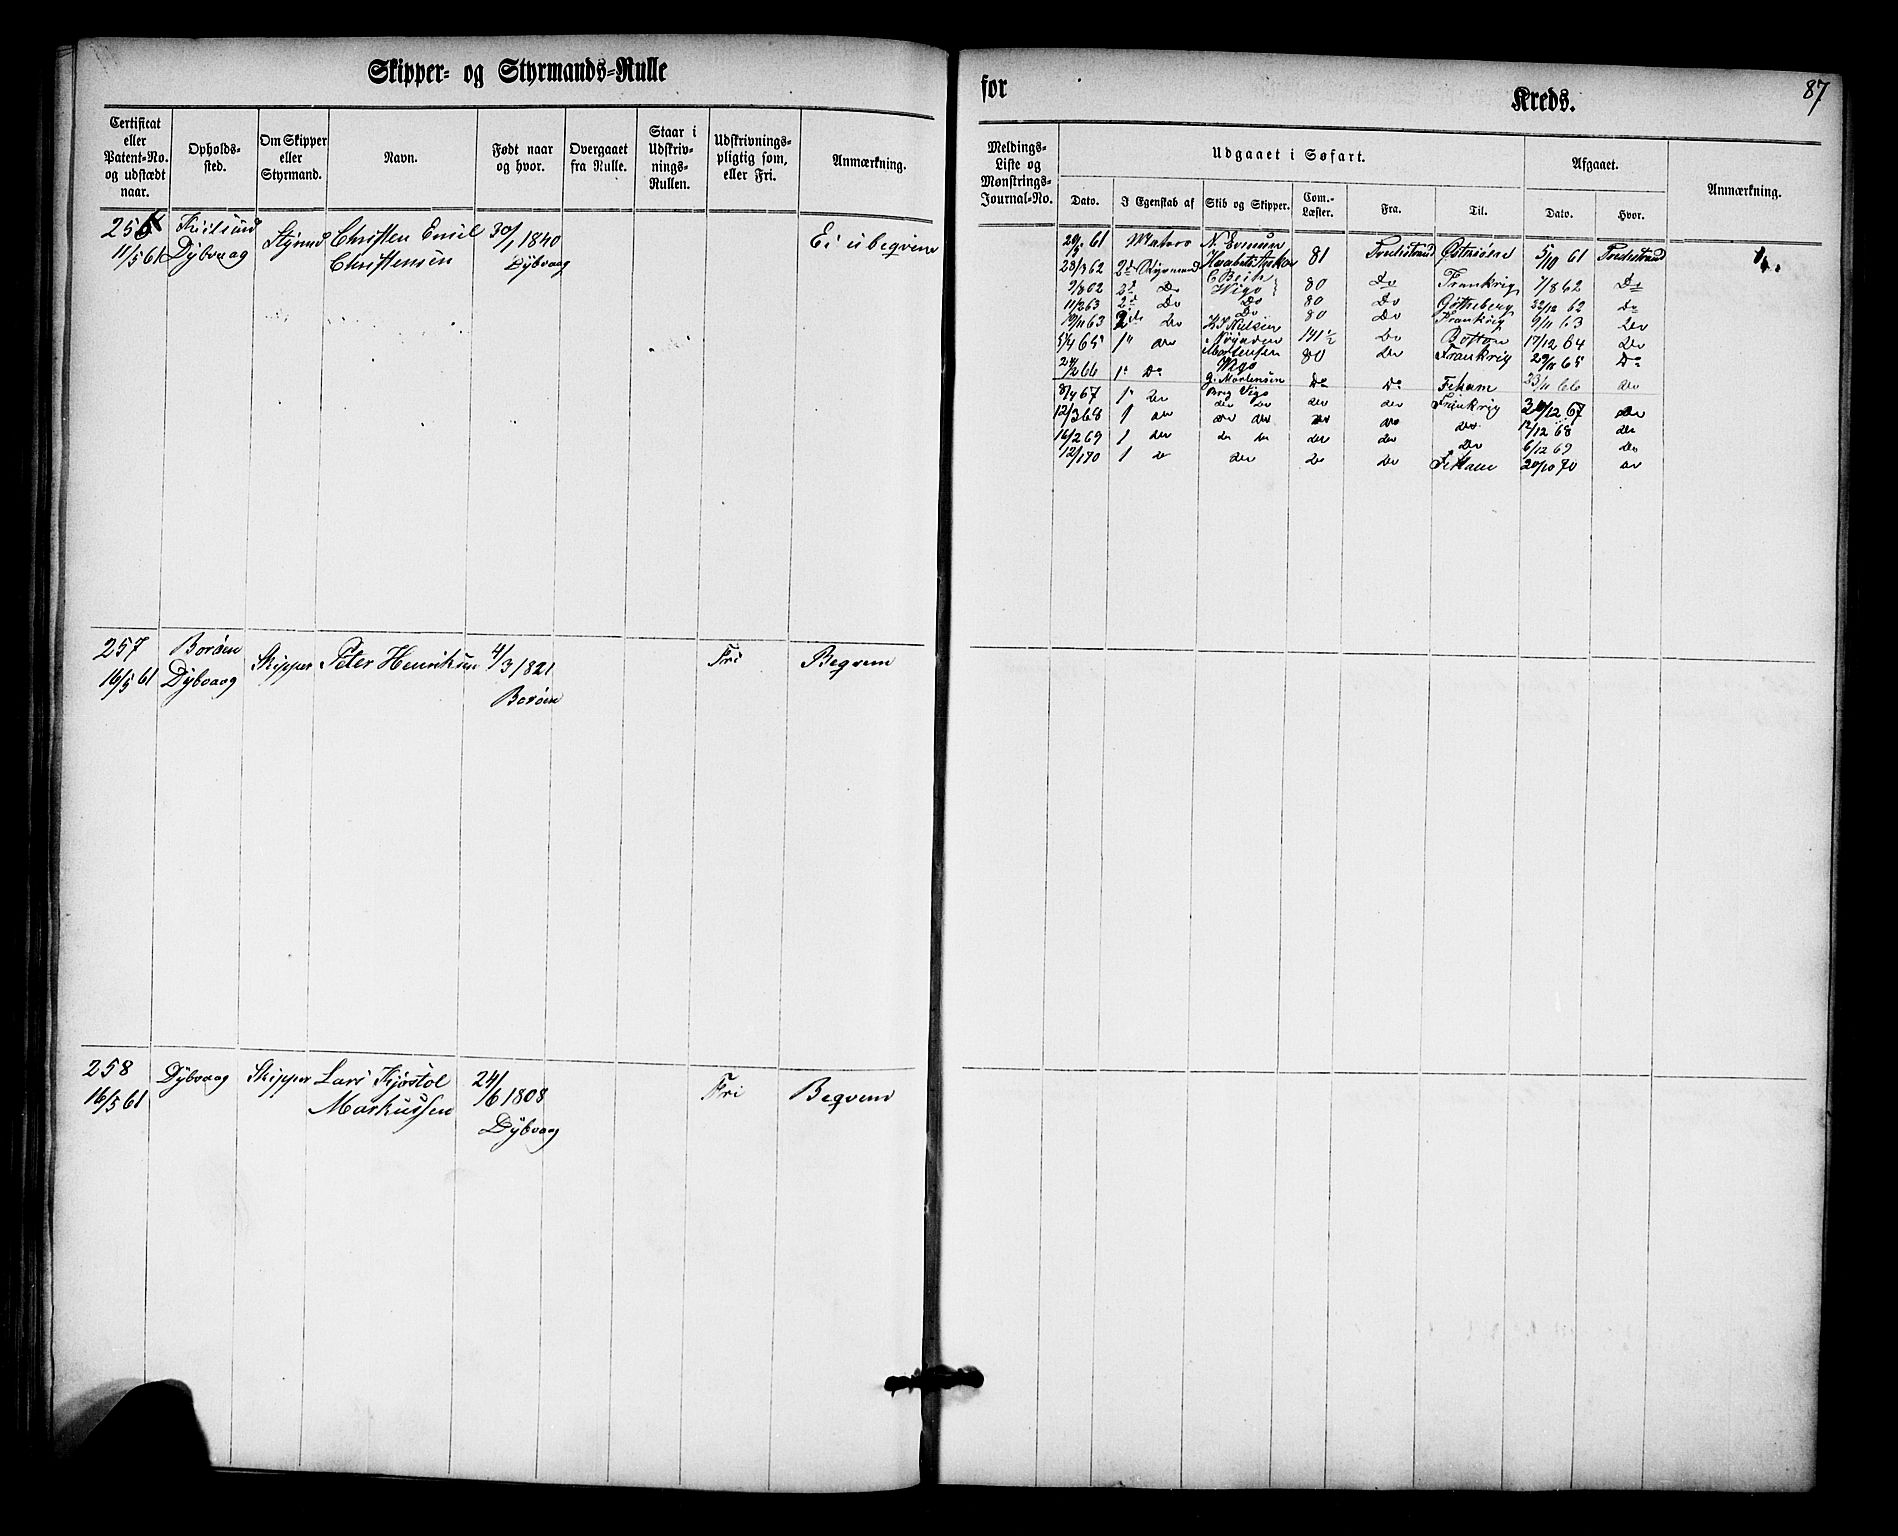 Skipper- og Styrmands-Rulle
for
Kreds.
87
Certificat eller Patent-No. og udstædt naar.
Opholds-sted.
Om Skipper eller Styrmand.
Navn.
Født naar og hvor.
Overgaaet fra Rulle.
Staar i Udskriv-nings-Rullen.
Udskrivnings-pligtig som, eller Fri.
Anmærkning.
Meldings-Liste og Mønstrings-Journal-No.
Udgaaet i Søfart.
Afgaaet.
Anmærkning.
Dato.
I Egenskab af
Skib og Skipper.
Com.-Læster.
Fra.
Til.
Dato.
Hvor.
256
11/5 61
Dybvaag
Styrmd
Christen Emil
Christensen
30/1 1840
Dybvaag
Ei ubeqvem
61 Matros 81 5/10 61
23/3 62 2d Styrmand
2d Do Wigo 80 Do Frankrig 7/8 62 Do
11/2 63 2d Do Do 80 Do Gøtheborg 22/12 62 Do
19/11 63 Do Do 80 Do Frankrig 9/11 63 Do
5/4 65 1 Do 141 1/2 Do Boston 17/12 64 Do
Mortensen 80 Do Frankrig 65 Do
2/66 1 Do Wigo
G. Mortensen Do Do Fekam 66 Do
8/4 67 1 Do Brig Vigo Do Do Frankrig 12 67 Do
12/3 68 1 Do Do Do Do Do Do 12/12 68 Do
16/2 69 1 Do Do Do Do Do Do 6/12 69 Do
12/1 70 1 Do Do Do Do Fekam 20/10 70 Do
257
16/5 61
Borøen
Dybvaag
Skipper
Peter Henriksen
4/3 1821
Borøen
Fri
Beqvem
258
16/5 61
Dybvaag
Skipper
Lars Kjøstol
Markussen
24/6 1808
Dybvaag
Fri
Beqvem